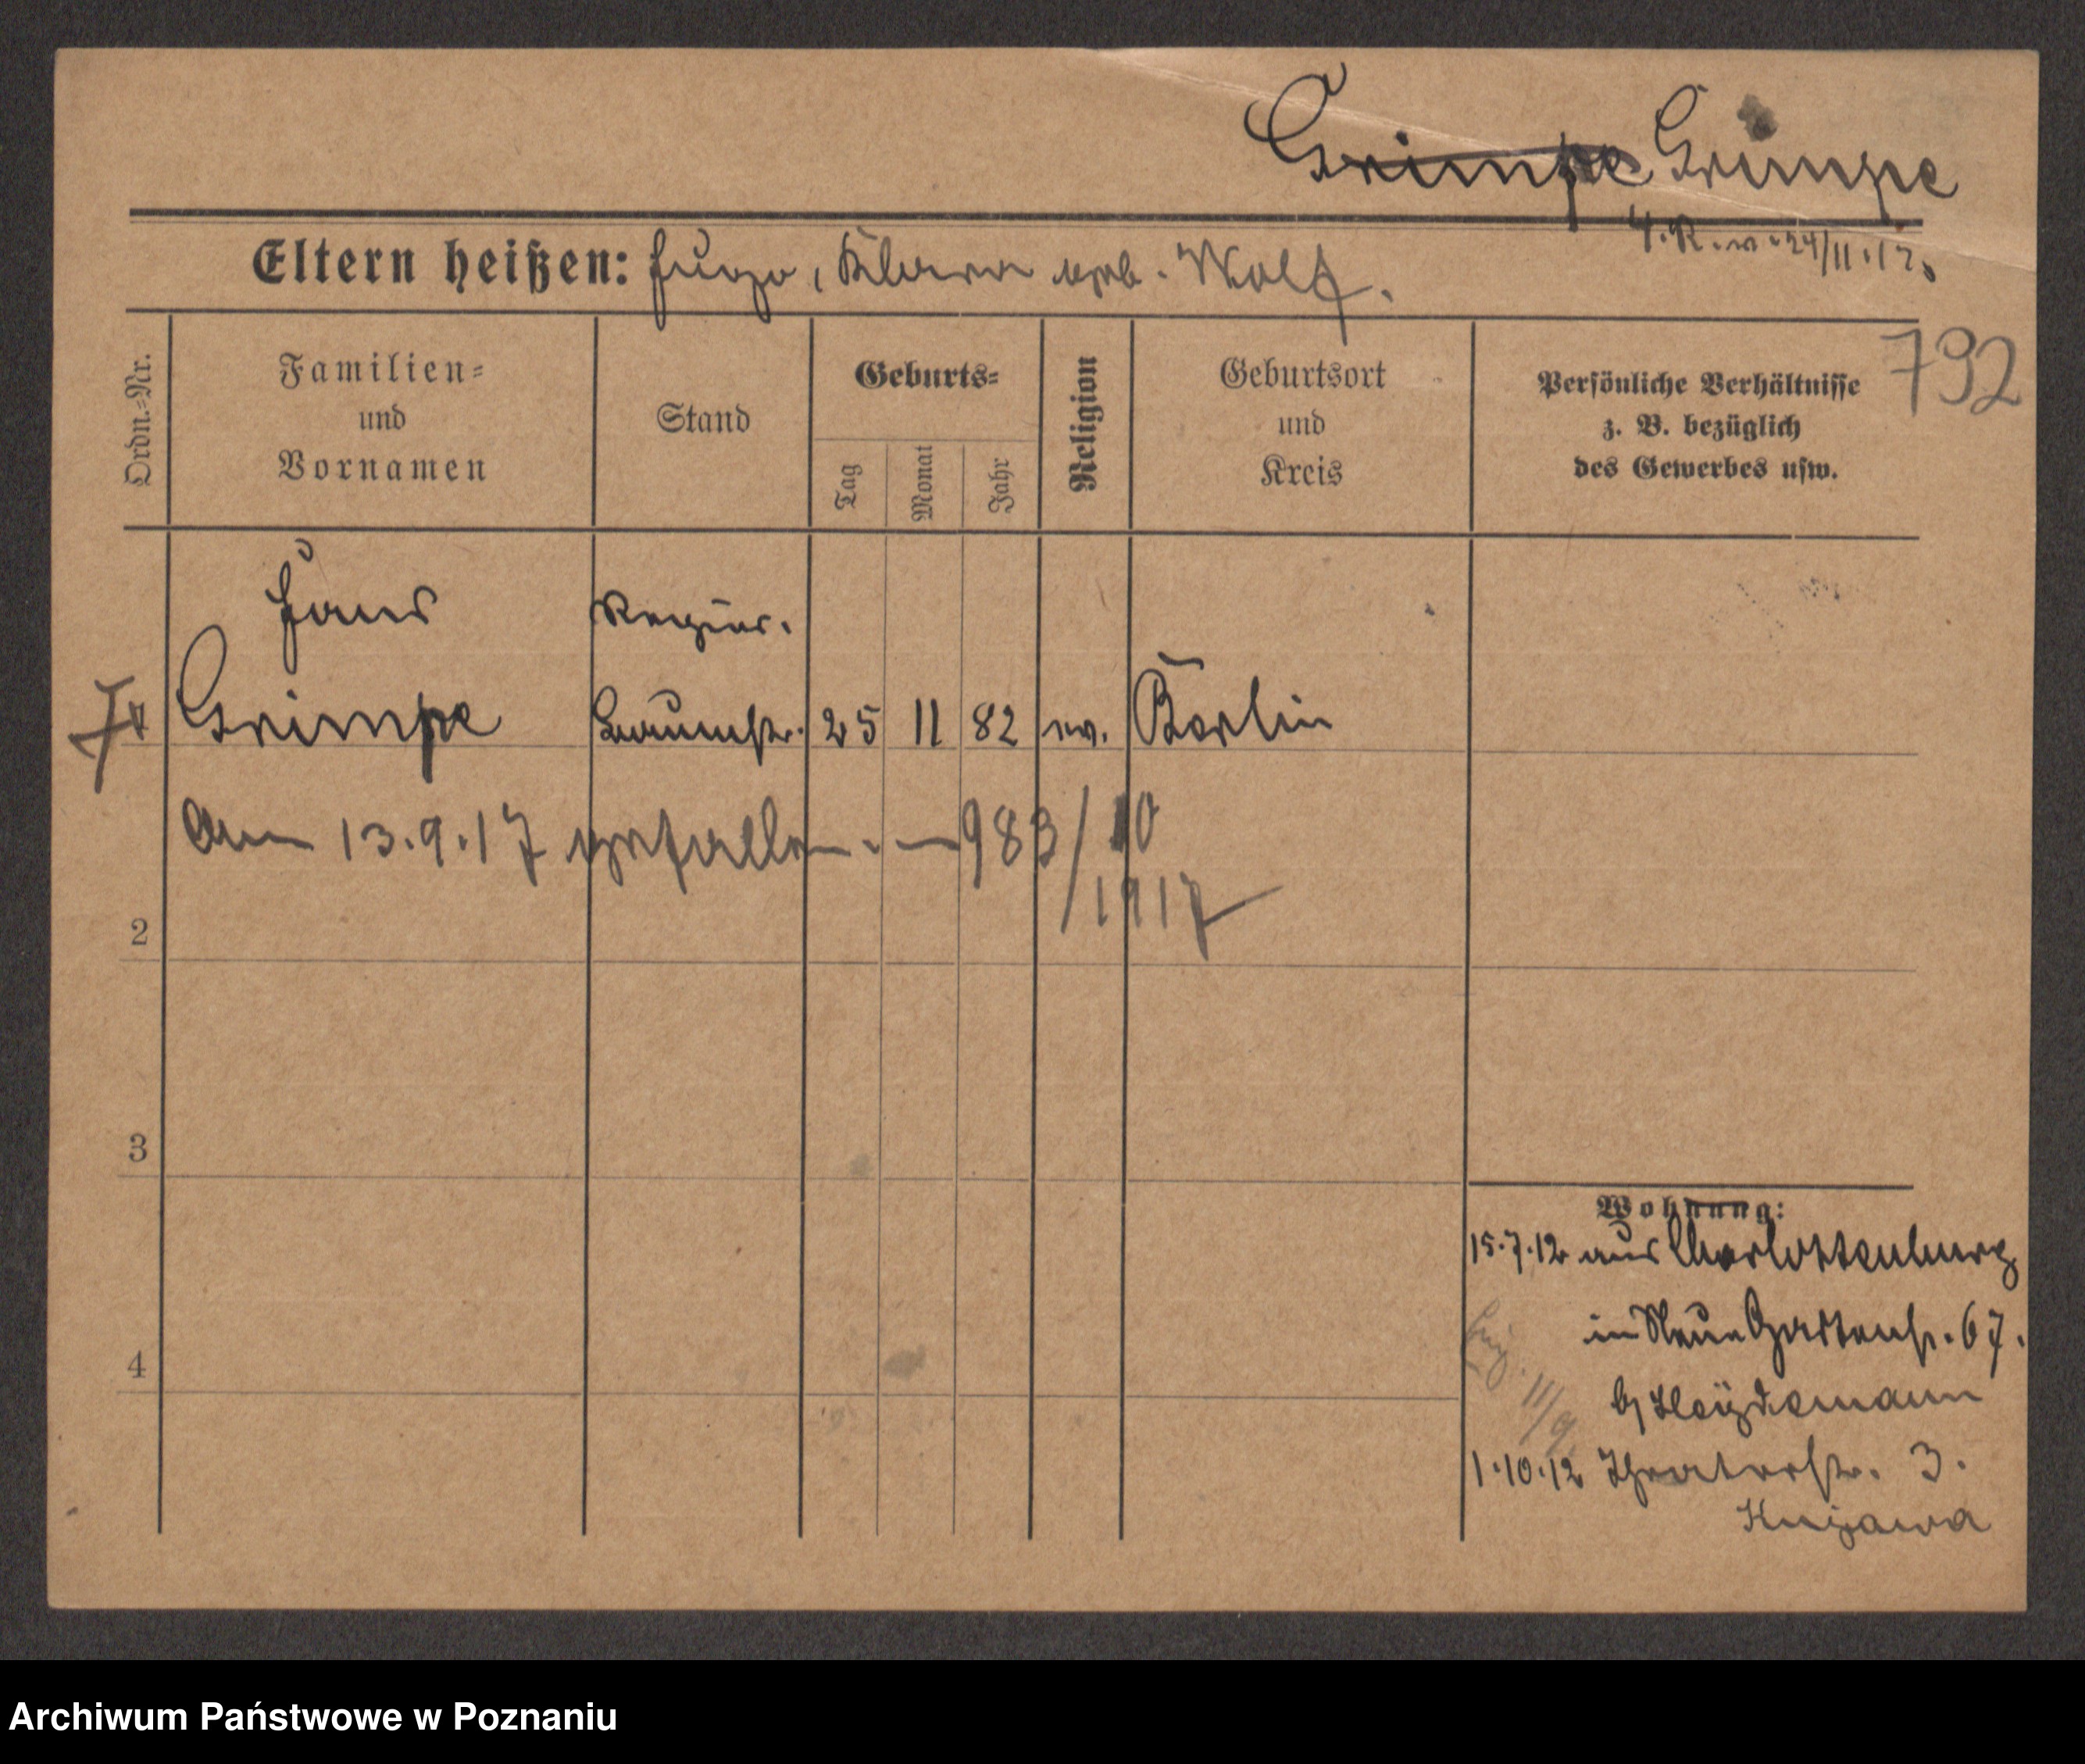 Grimpe Grimpe
24/11.12.
Eltern heißen: Hugo, Klara geb. Wolf.
792
Ordn.=Nr.
Familien=
und
Vornamen
Stand
Geburts=
Tag
Monat
Jahr
Religion
Geburtsort
und
Kreis
Persönliche Verhältnisse
z. B. bezüglich
des Gewerbes usw.
Hans Regier.
Grimpe Baumstr. 25 11 82 ev. Berlin
Am 13.9.17 gefallen. — 983/10
1917
2
3
4
Wohnung:
15.7.12 aus Charlottenburg
in Neue Gartenstr. 67.
b/ Heydemann
11/9.
1.10.12 Theaterstr. 3.
Kujawa
Archiwum Państwowe w Poznaniu